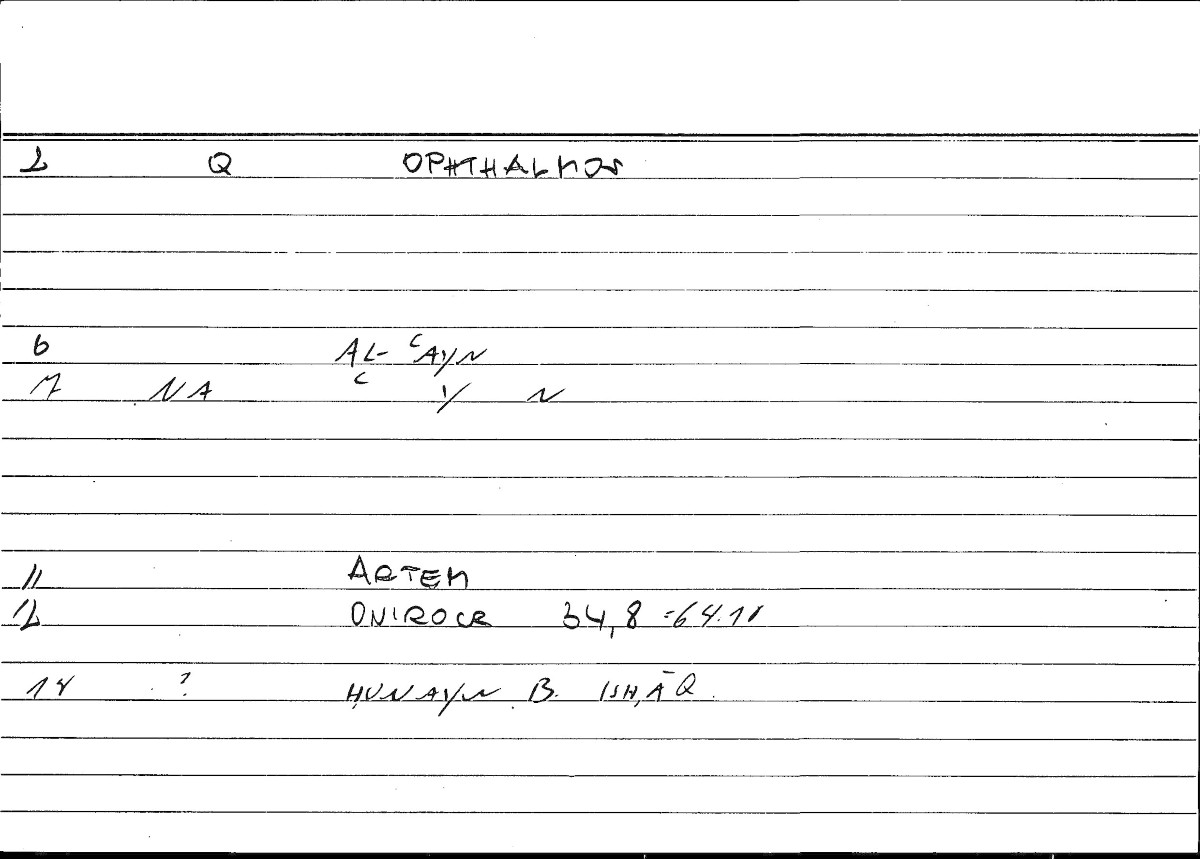 2 Q OPHTHALMOS
6 AL- ʿAYN
7 NA ʿ Y N
11 ARTEM
12 ONIROCR 34,8 = 64.11
14 ? ḤUNAYN B. ISḤĀQ.